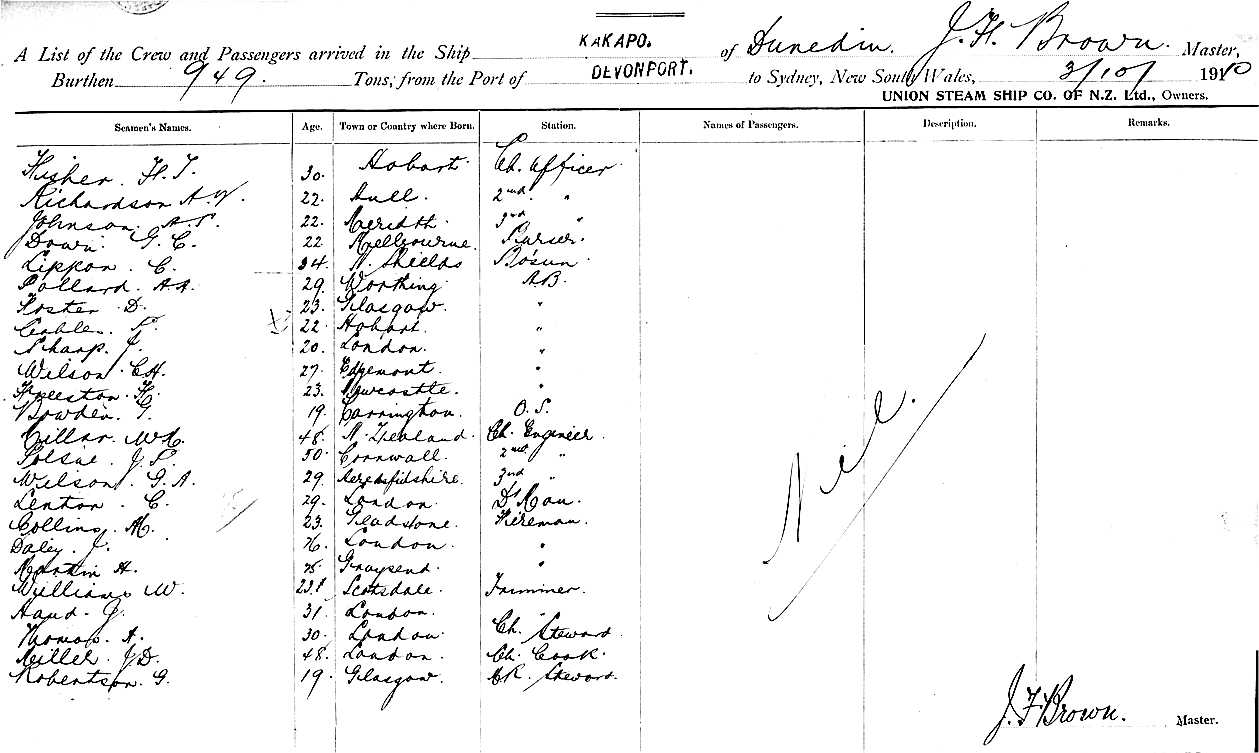 A List of the Crew and Passengers arrived in the Ship KAKAPO. of Dunedin. J. F. Brown. Master,
Burthen 949. Tons, from the Port of DEVONPORT. to Sydney, New South Wales, 3/10/ 1910
UNION STEAM SHIP CO. OF N.Z. Ltd., Owners.
Seamen's Names. Age. Town or Country where Born. Station. Names of Passengers. Description. Remarks.
Fisher. H. T. 30. Hobart. Ch. Officer.
Richardson A. W. 22. Hull. 2nd "
Johnson. 22. Meredith. 3rd "
Down. G. C. 22 Melbourne. Purser.
Lippon. C. 34. N. Shields Bosun.
Pollard. A. A. 29. Worthing. AB.
Foster D. 23. Glasgow. "
22. Hobart. "
Sharp. J. 20. London. "
Wilson. C H. 27. Edgemont. "
Freeston. H. 23. Newcastle. "
Bowden. G. 19. Carrington. O. S.
48. N. Zealand. Ch. Engineer.
50. Cornwall. 2nd "
Wilson. G. A. 29. 3rd "
Lenton. C. 29. London. D'Man.
Collins. M. 23. Gladstone. Fireman.
Daley. J. 26. London. "
Martin H. Graysend. "
Williams W. Scotsdale. Trimmer.
Hand. G. 31. London. "
Thomas. A. 30. London. Ch. Steward.
Miller. J D. 48. London. Ch. Cook.
Robertson. G. 19. Glasgow. Steward.
Nil.
J. F Brown. Master.